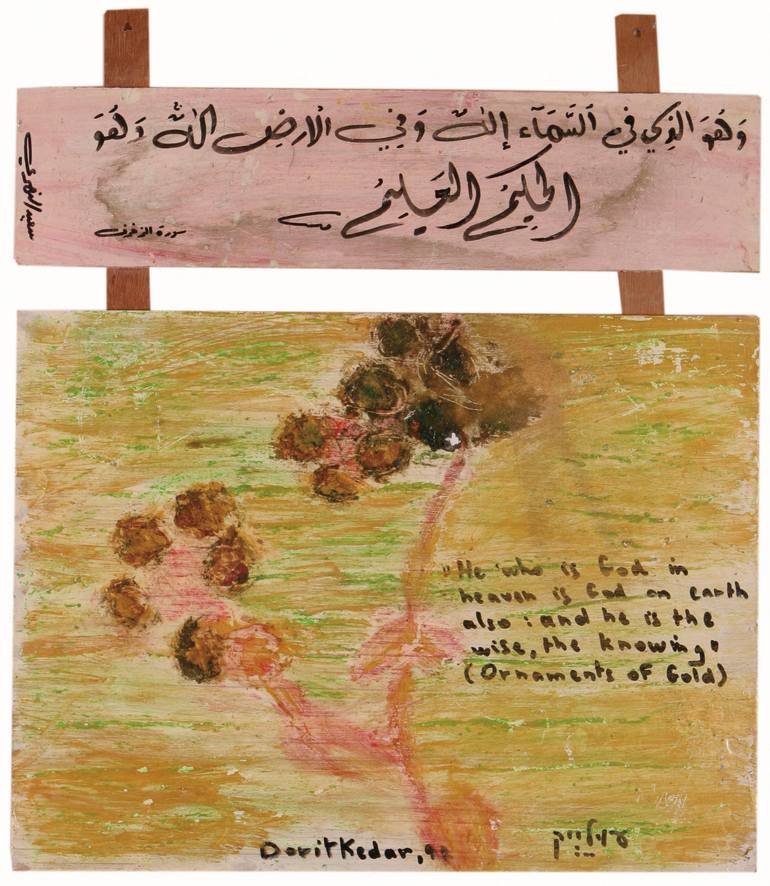 وَهُوَ الَّذِي فِي السَّمَآءِ إِلَٰهٌ وَفِي الْأَرْضِ إِلَٰهٌ وَهُوَ
الْحَكِيمُ الْعَلِيمُ
سورة الزخرف
"He who is God in
heaven is God on earth
also: and he is the
wise, the knowing"
(Ornaments of Gold)
Dorit Kedar, 9